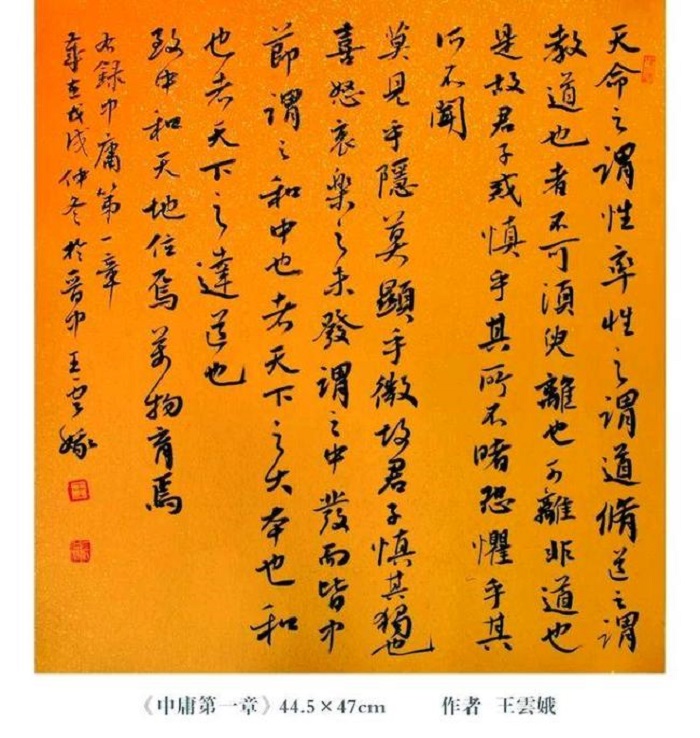 天命之謂性率性之謂道脩道之謂
教道也者不可須臾離也可離非道也
是故君子戒慎乎其所不睹恐懼乎其
所不聞
莫見乎隱莫顯乎微故君子慎其獨也
喜怒哀樂之未發謂之中發而皆中
節謂之和中也者天下之大本也和
也者天下之達道也
致中和天地位焉萬物育焉
右録中庸第一章
歲在戊戌仲冬於晋中王雲娥
《中庸第一章》44.5×47cm 作者 王雲娥